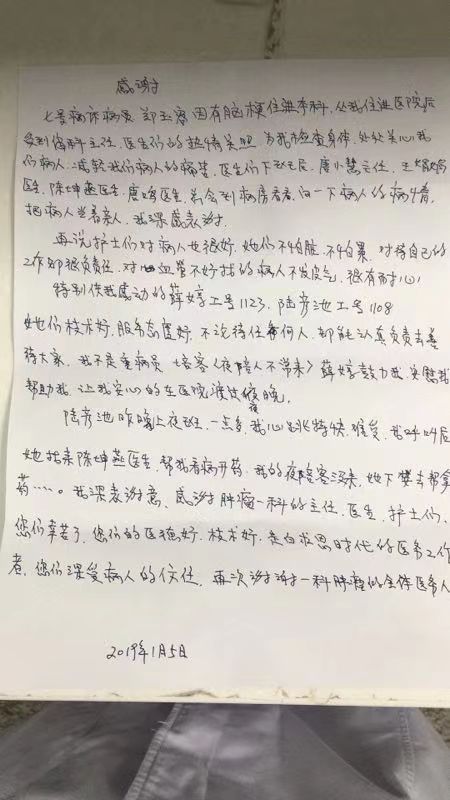 感谢
七号病床病员 郑玉 因有脑梗住进本科,从我住进医院后
受到你科主任、医生们的热情关照 为我检查身体,处处关心我
们病人:减轻我们病人的痛苦,医生们下班后,唐小慧主任,王
医生,陈坤燕医生,唐 医生,总会到病房看看,问一下病人的病情,
把病人当着亲人,我深感表谢.
再说护士们对病人也很好,她们不怕脏,不怕累,对待自己的
工作却很负责任,对 血管不好找的病人不发皮气,很有耐心
特别使我感动的薛婷工号1123,陆彦池工号1108
她们技术好,服务态度好,不论待任何人,都能认真负责去善
待大家,我不是重病员,培客《夜陪人不常来》薛婷鼓力我,安慰我
帮助我,让我安心的在医院渡过夜晚.
陆彦池昨晚上夜班,一点多,我心跳特快,难受,我呼叫后
她找来陈坤燕医生,帮我看病开药,我的夜陪客没来,她下楼去帮拿
药……。我深表谢意,感谢肿瘤一科的主任,医生,护士们,
您们辛苦了,您们的医德好,技术好,是白求恩时代的医务工作
者,您们深受病人的信任,再次谢谢一科肿瘤的全体医务人
2019年1月5日